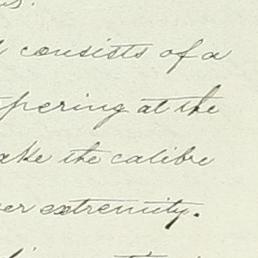 consists of a
pering at the
ake the calibre
er extremity.